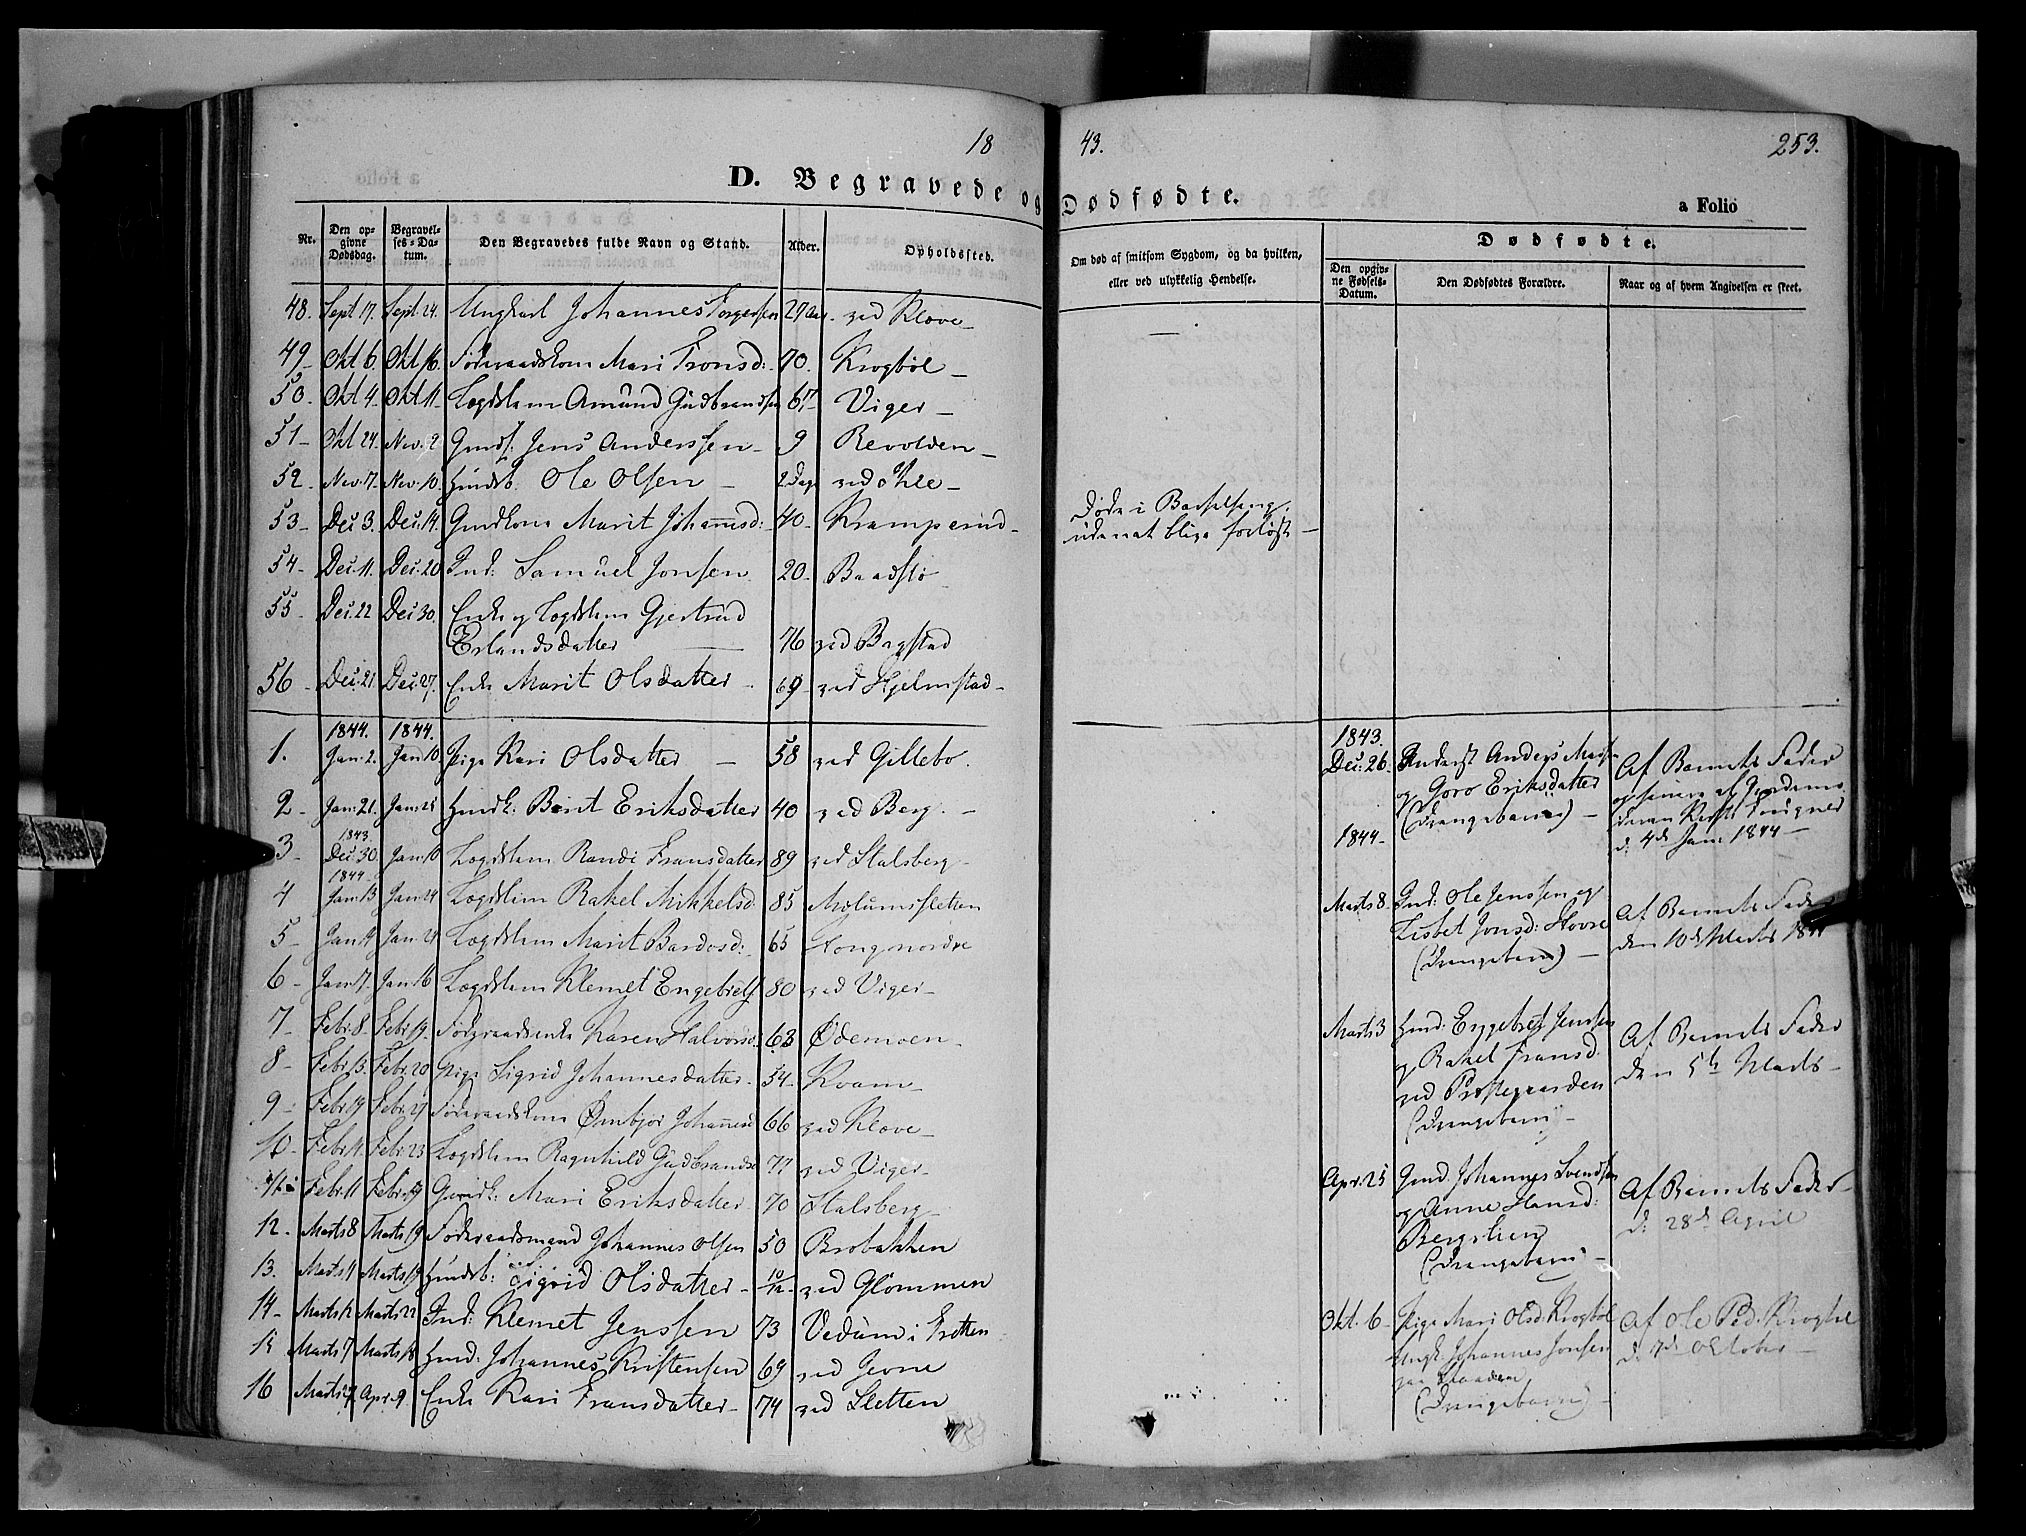 18 43. 253.
D. Begravede og Dødfødte. a Folio
Nr. Den opgivne Dødsdag. Begravelses-Datum. Den Begravedes fulde Navn og Stand. Alder. Opholdssted. Om død af smitsom Sygdom, og da hvilken, eller ved ulykkelig Hendelse. Dødfødte.
Den opgivne Fødsels-Datum. Den Dødfødtes Forældre. Naar og af hvem Angivelsen er skeet.
48. Sept 17. Sept. 24. Ungkarl Johannes Torgersen 29 Aar. ved Kløve
49 Okt 6. Okt 16. Føderaadskone Mari Tronsd: 70. Krogbøl
50. Okt 4. Okt 11. Lægdslem Amund Gudbrandsen 67 Viger
51 Okt 24. Nov. 9 Gmdf. Jens Anderssen 9 Revolden
52. Nov. 17. Nov. 10. Huusb. Ole Olsen 2 Dage ved
53 Dec 3. Dec. 14. Gmdkone Marit Johannesd: 40 Kramperud Døde i Barselseng, uden at blive forløst
54 Dec. 11. Dec. 20 Ind: Samuel Jonsen 20 Baadstø
55 Dec. 22 Dec 30. Enke og Lægdslem Gjertrud
Erlandsdatter 76 ved Bagstad
56 Dec. 21. Dec. 27. Enke Marit Olsdatter 69 ved Hjelmstad
1844. 1844.
1. Jan. 2. Jan 10 Pige Kari Olsdatter 58 ved Gillebo.
2 Jan. 21. Jan. 28 Hmdk. Berit Eriksdatter 40 ved Berg.
3 1843 Dec. 30. Jan 10 Lægdslem Randi Fransdatter 89 ved Stalsberg
4 1844 Jan. 13 Jan. 24 Lægdslem Rakel Mikkelsd. 85 Molumsfletten
5 Jan. 14 Jan. 24 Lægdslem Marit Bardosd: 65 Hong nordre
6 Jan. 7. Jan 16 Lægdslem Klemet Engebrets 80 ved Viger
7 Febr. 8 Febr. 19. Føderaadsenke Karen Halvorsd. 63 Ødemoen
8 Febr. 13. Febr. 20 Pige Sigrid Johannesdatter 54 Kvam
9 Febr. 19 Febr. 27 Føderaadskone Johannesd 66 ved Kløve
10 Febr. 14. Febr. 23 Lægdslem Ragnhild Gudbrandsd 77 ved Viger
11 Febr. 11 Febr. 19 Gmdk: Mari Eriksdatter 70 Stalsberg
12. Marts 8 Marts 19 Føderaadsmand Johannes Olsen 50 Brobakken
13. Marts 11 Marts 19 Huusb: Sigrid Olsdatter 10/12 ved Glommen
14 Marts 12 Marts 22 Ind: Klemet Jenssen 73 Vedum i Fretten
15 Marts 7 Marts 18 Hmd: Johannes Kristensen 69 ved Jevne
16 Marts 27 Apr. 9. Enke Kari Fransdatter 74 ved Sletten
1843.
Dec. 26 Anders
og Goro Eriksdatter
(Drengebarn)
Af Barnets Fader
d. 4de Jan. 1844
1844
Marts 8 Ind: Ole Jenssen og
Lisbet Jonsd: Hovre
(Drengebarn)
Af Barnets Fader
den 10de Marts 1844
Marts 3 Hmd: Engebret Jensen
og Rakel Fransd.
ved Prestegaarden
(Drengebarn)
Af Barnets Fader
den 5te Marts
Apr. 25 Gmd. Johannes Svendsen
og Anne Hansd:
Bergslien
(Drengebarn)
Af Barnets Fader
d: 28de April
Okt. 6 Pige Mari Olsd: Krogbøl
Ungk. Johannes Jonsen
(Drengebarn)
Af Ole Ped: Krogbøl
d. 7de Oktober